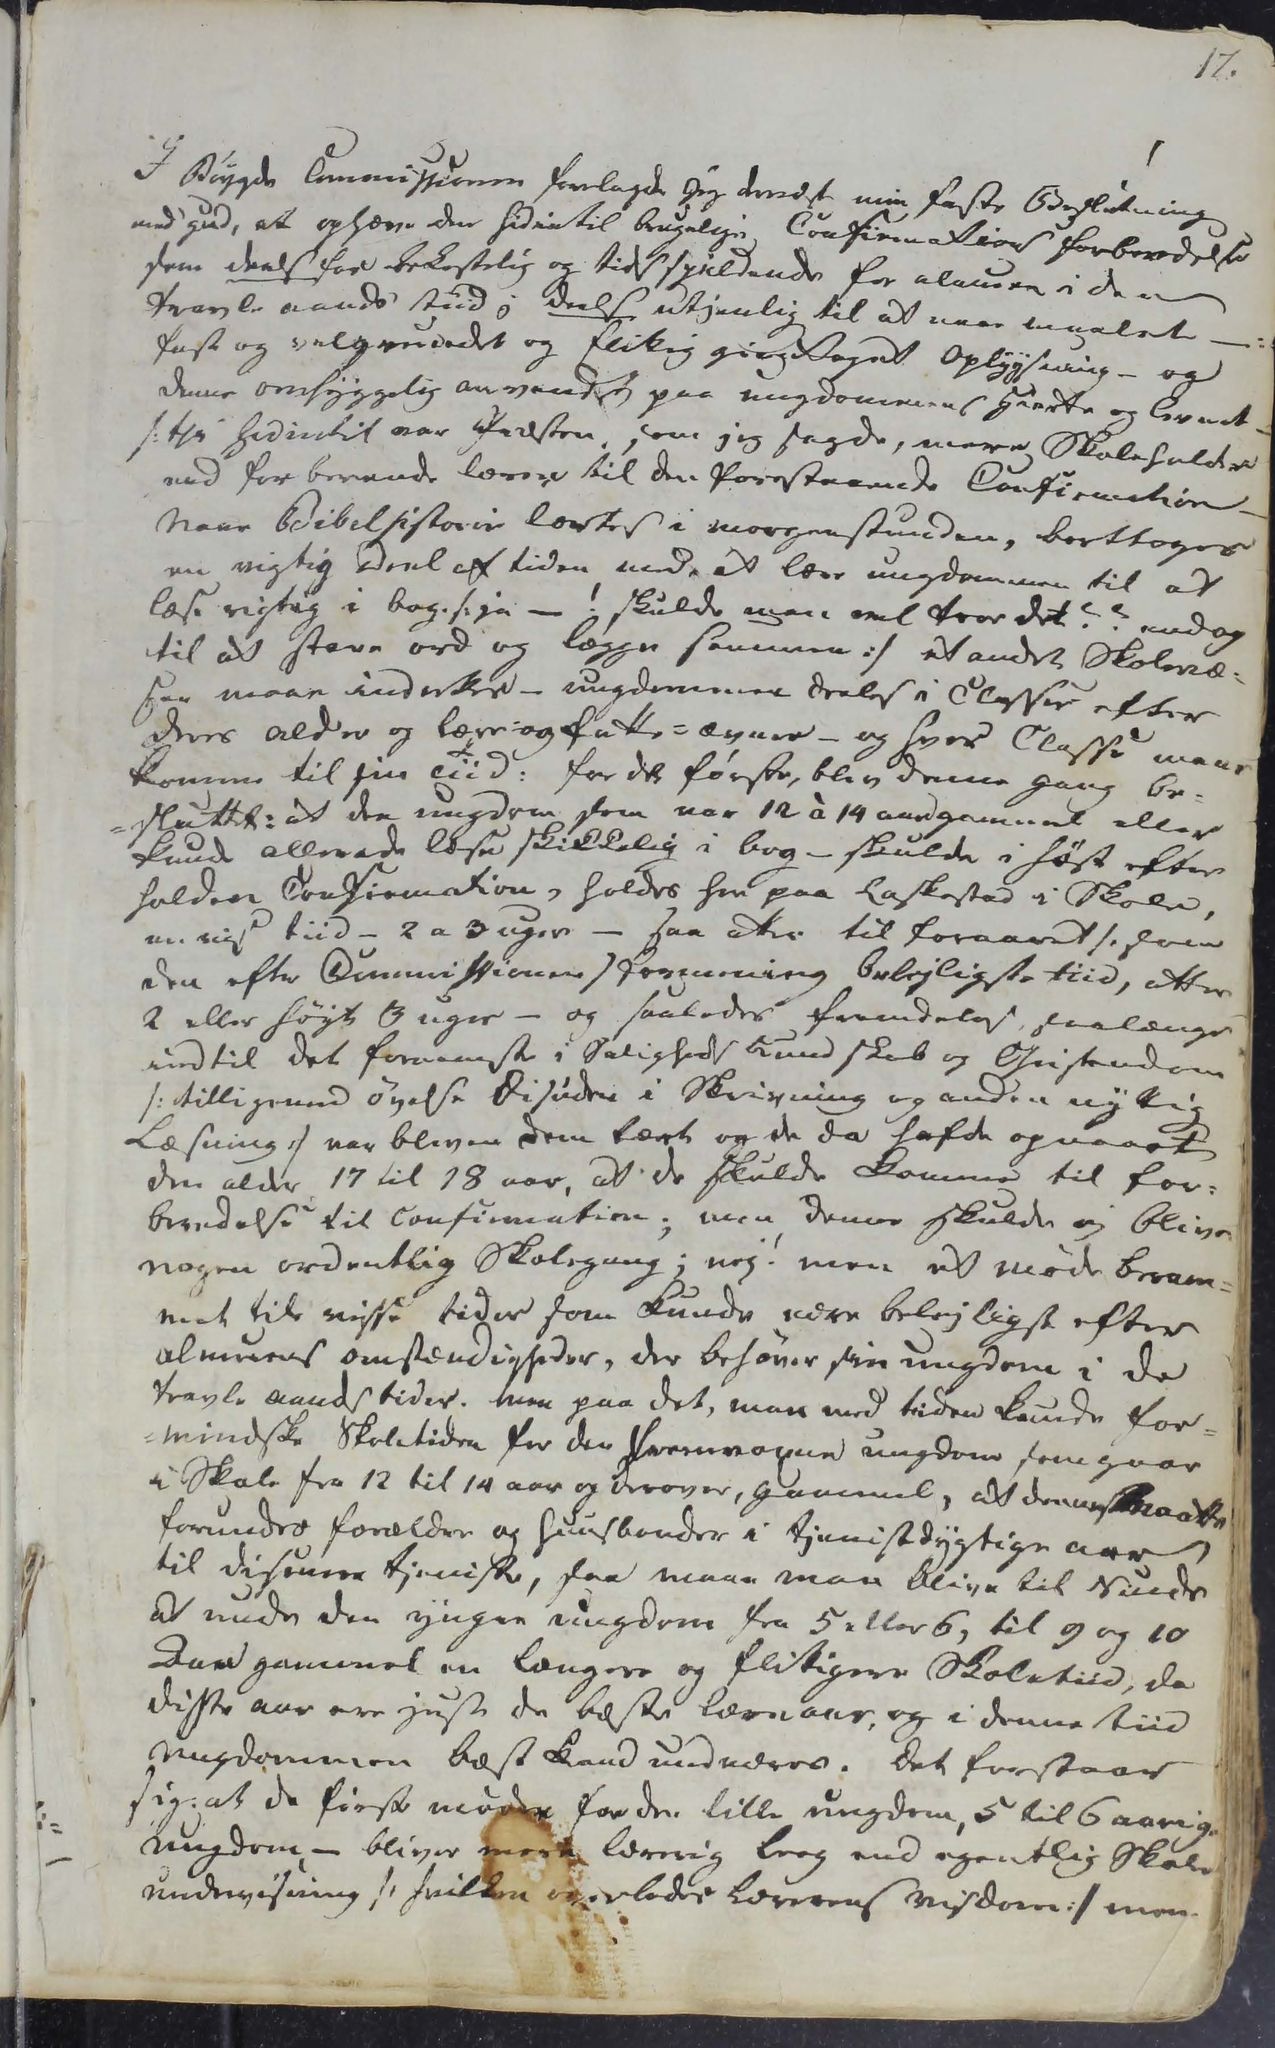 17.
I Bøygde Commissionen forelagde jeg dernæst min faste Beslutning
med gud, at ophæve den hidintil brugelige Confirmations forberedelse
som deels for bekostelig og tidsspildende for almuen i den
travle aands tiid; deels utjenlig til at naae maalet —
fast og velgrundet og flikig gientaget Oplyysning - og
denne omhyggelig anvendes paa ungdommens Hierte og levnet -
/: thi hidintil var Præsten, som jeg sagde, mere Skoleholder
end forberende lærer til den forestaaende Confirmation -
Naar Bibelhistorie lærtes i morgenstunden, borttoges
en vigtig deel af tiden med at lære ungdommen til at
læse rigtig i bog. /: ja - ! skulde man vel troe det?? endog
til at stave ord og lægge sammen :/ et andet Skolevæ-
sen maae indrettes - ungdommen deeles i Classer efter
deres alder og lære- og fatte-ævner - og hver Classe maae
komme til sin tiid: for det første, blev denne gang be-
-sluttet: at den ungdom som var 12 à 14 aar gammel eller
kunde allerede læse skikkelig i bog - skulde i høst efter
holden Confirmation, holdes her paa Laskestad i Skole,
en vis tiid - 2 a 3 uger - saa atter til foraaret /: som
den efter Commissionens formening belejligste tiid, atter
2 eller høyt 3 uger - og saaledes fremdeles, saalænge
indtil det fornemste i Saligheds Kundskab og Christendom
/: tilligemed øvelse disuden i Skrivning og anden nyttig
Læsning :/ var bleven dem lært og de da hafde opnaaet
den alder 17 til 18 aar, at de skulde komme til for-
beredelse til Confirmation; men denne skulde ej blive
nogen ordentlig Skolegang; nej! men et møde beram-
met til visse tider som kunde være belejligst efter
almuens omstændigheder, der behøver sin ungdom i de
travle aands tider. men paa det, man med tiden kunde for-
-mindske Skoletiden for den fremvoxne ungdom som gaar
i Skole fra 12 til 14 aar og derover, gammel, at denne maatte
forundes forældre og huusbonder i tjenistdygtige aar
til disennem tjeniste, saa maae man blive til Sinds
at unde den yngre ungdom fra 5 eller 6, til 9 og 10
Aar gammel en længere og flitigere Skoletiid, da
disse aar ere just de bæste læreaar, og i denne tiid
ungdommen bæst kand undværes. Det forstaar
sig: at de første møder for den lille ungdom, 5 til 6 aarig
ungdom - bliver mere lærerig leeg end egentlig Skole
undervisning /: hvilken overlades Lærerens visdom :/ men